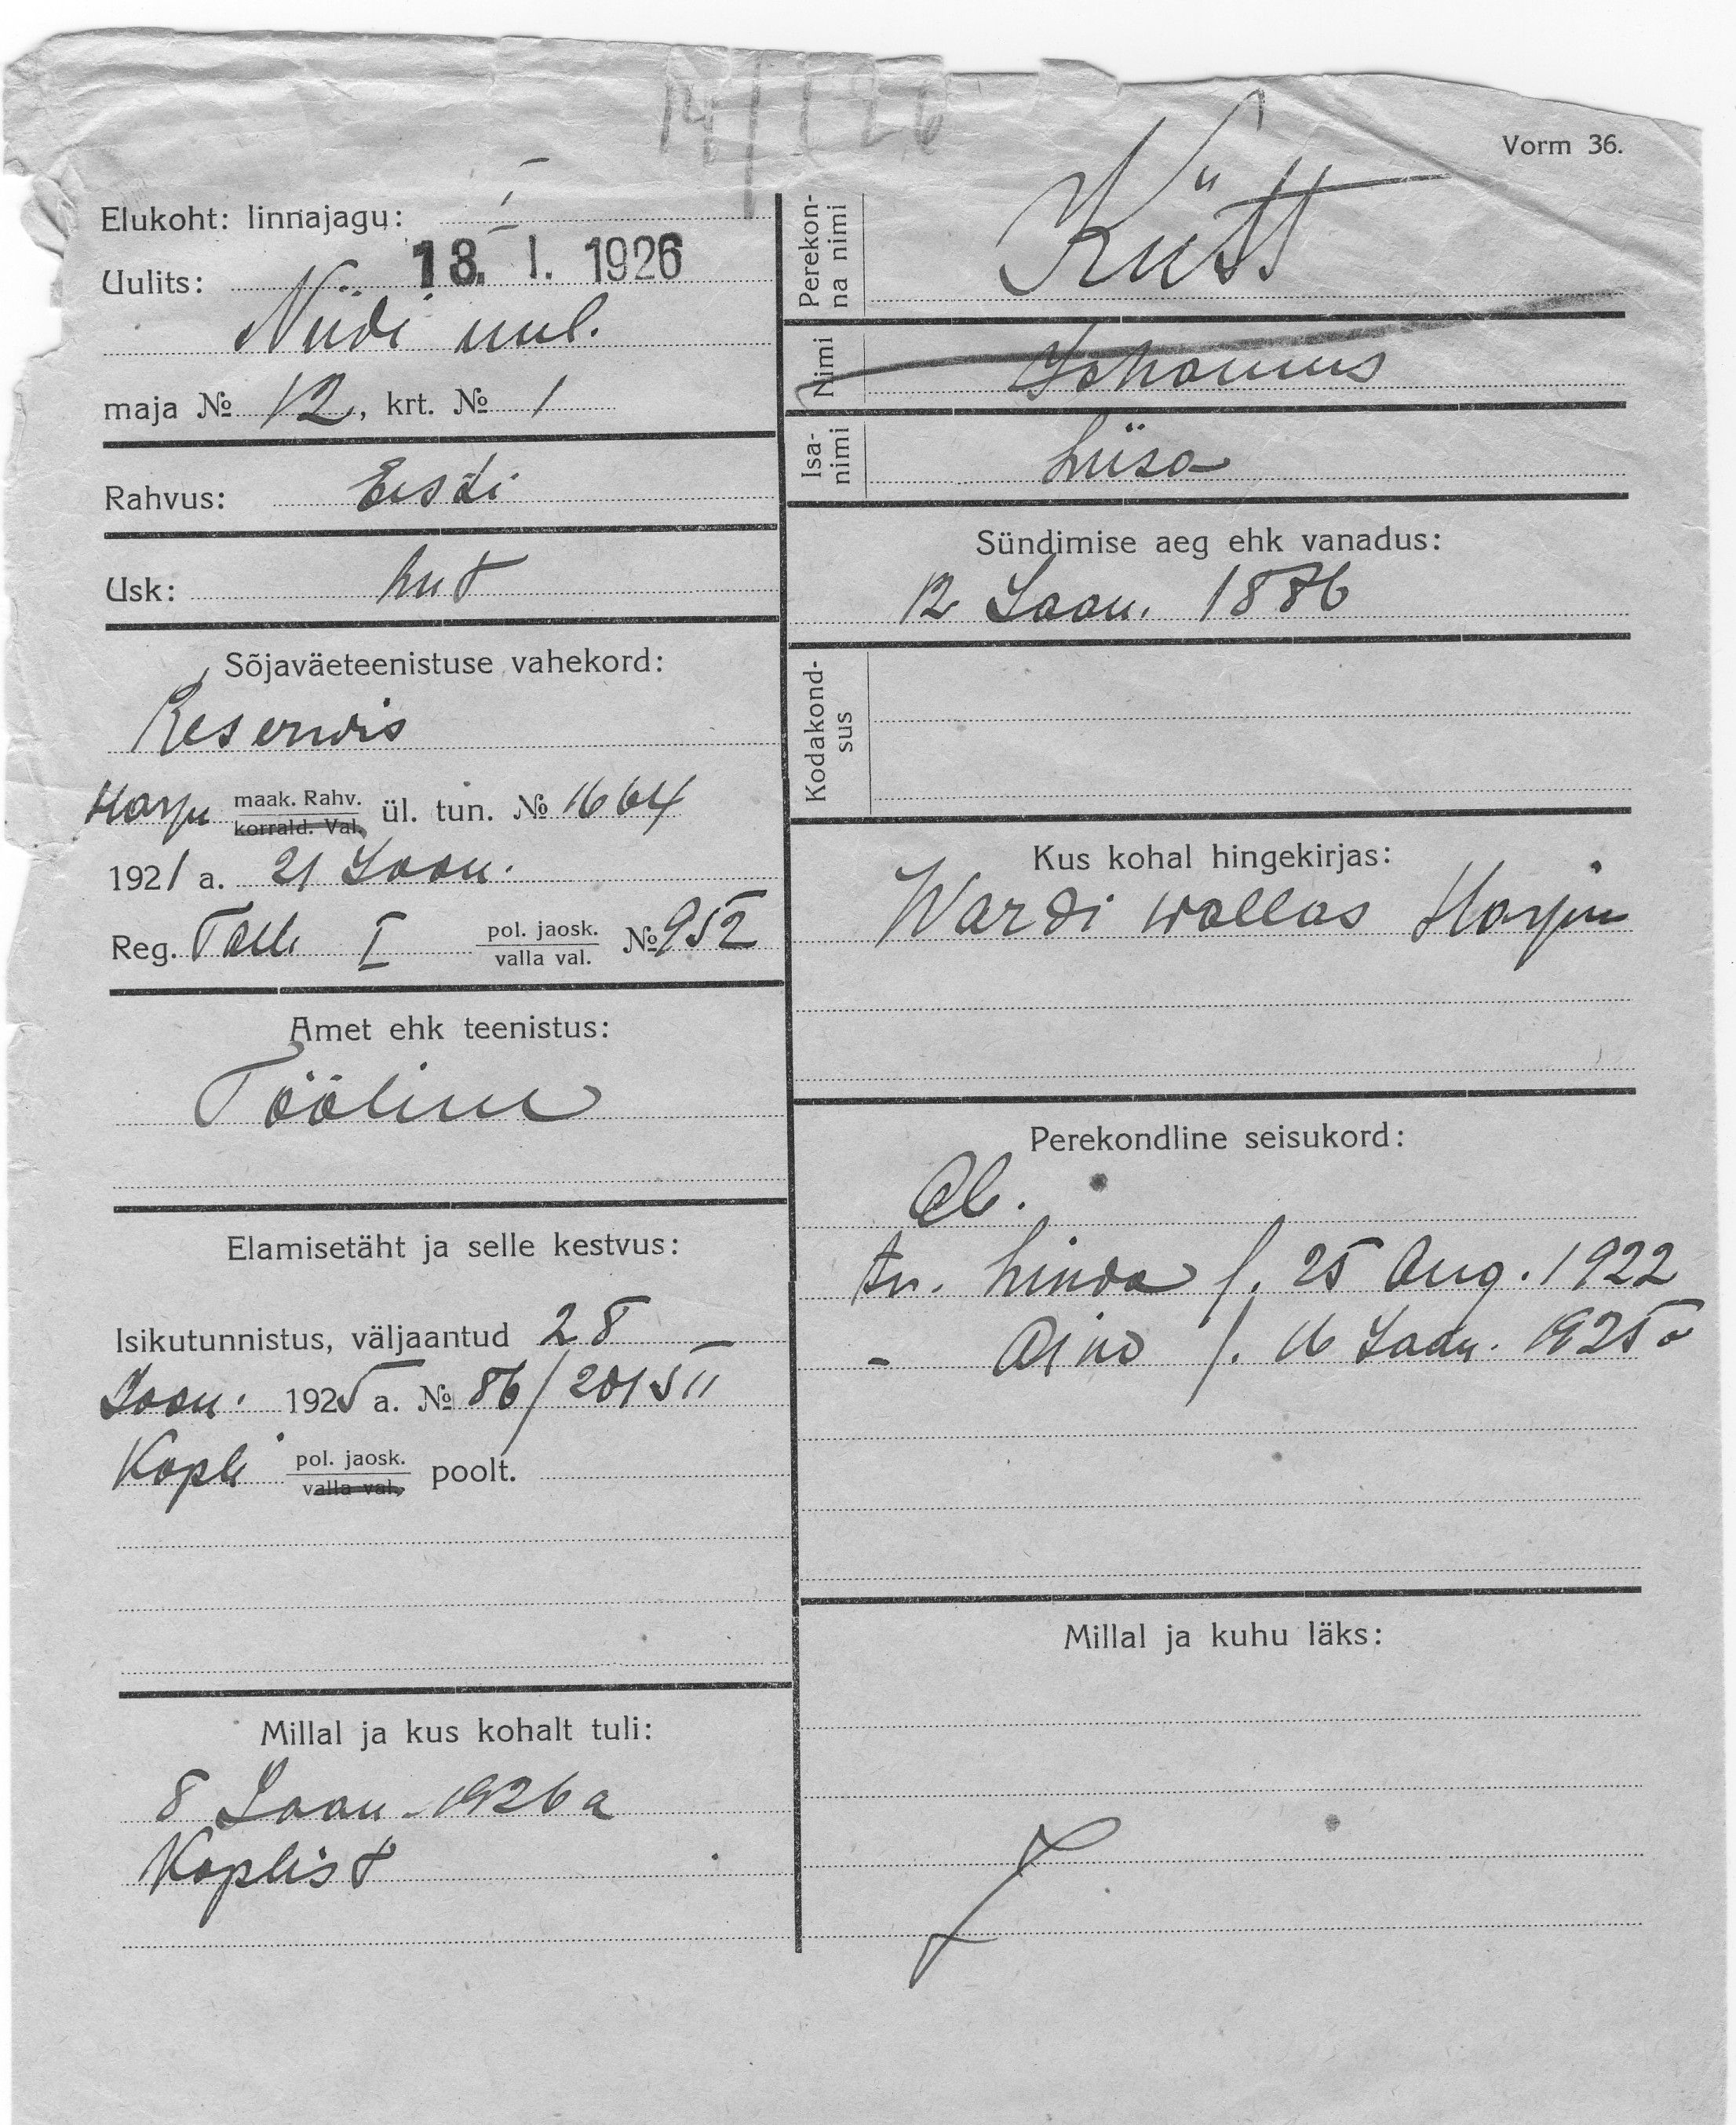 14/I 26
Vorm 36.
Elukoht: linnajagu: I
18. I. 1926
Uulits:
Niidi uul.
maja № 12, krt. № 1
Rahvus: Eesti
Usk: Lut
Sõjaväeteenistuse vahekord:
Reservis
Harju maak. Rahv. korrald. Val. ül. tun. № 1664
1921 a. 21 Jaan.
Reg. Tall. I pol. jaosk. valla val. № 952
Amet ehk teenistus:
Tööline
Elamisetäht ja selle kestvus:
Isikutunnistus, väljaantud 28
Jaan. 1925 a. № 86/
Kopli pol. jaosk. valla val. poolt.
Millal ja kus kohalt tuli:
8 Jaan. 1926 a
Koplist
Perekon-
na nimi
Kütt
Nimi
Johannes
Isa-
nimi
Liisa
Sündimise aeg ehk vanadus:
12 Jaan. 1886
Kodakond-
sus
Kus kohal hingekirjas:
Wardi wallas Harju
Perekondline seisukord:
Ab.
tr. Linda s. 25 Aug. 1922
- Aino s. 16 Jaan. 1925 a
Millal ja kuhu läks: